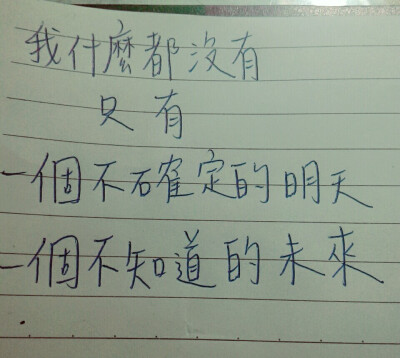 我什麼都沒有
只有
一個不確定的明天
一個不知道的未來